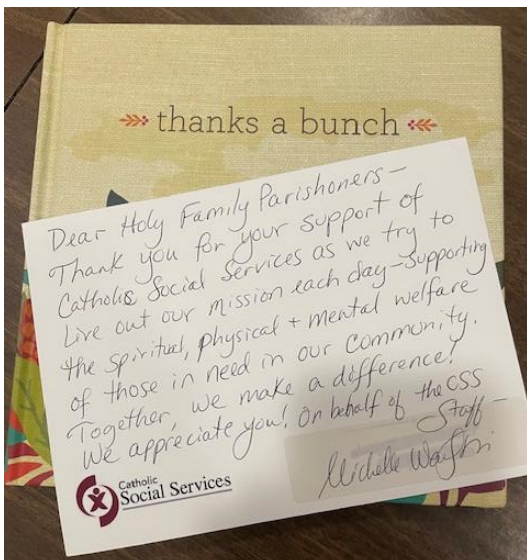 thanks a bunch
Dear Holy Family Parishoners —
Thank you for your support of
Catholic Social Services as we try to
Live out our mission each day — supporting
the spiritual, physical + mental welfare
of those in need in our community.
Together, we make a difference!
We appreciate you! On behalf of the CSS
Staff —
Michelle
Catholic
Social Services